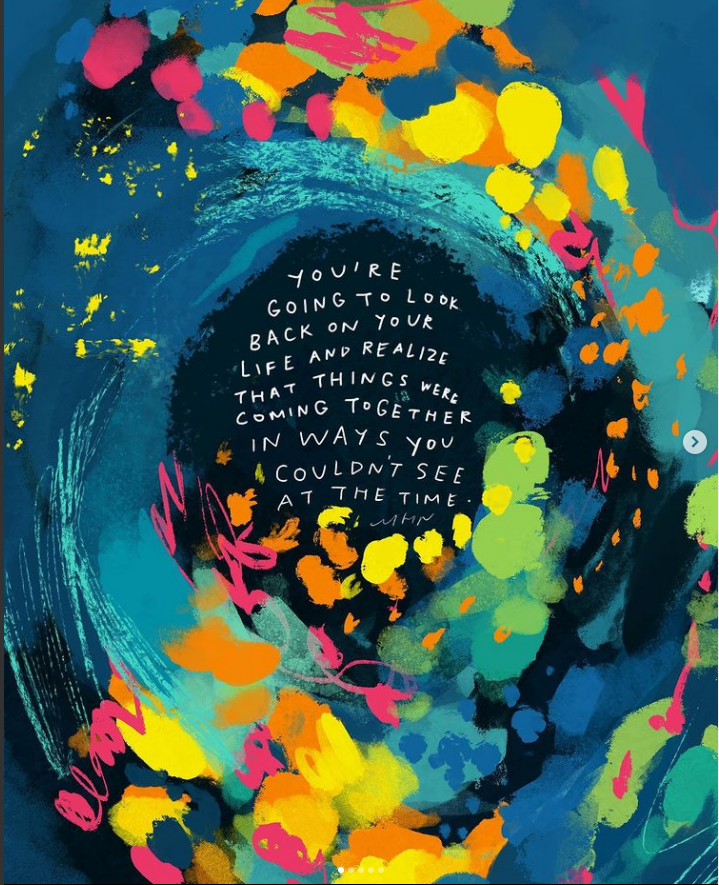 YOU'RE
GOING TO LOOK
BACK ON YOUR
LIFE AND REALIZE
THAT THINGS WERE
COMING TOGETHER
IN WAYS YOU
COULDN'T SEE
AT THE TIME.
MHN